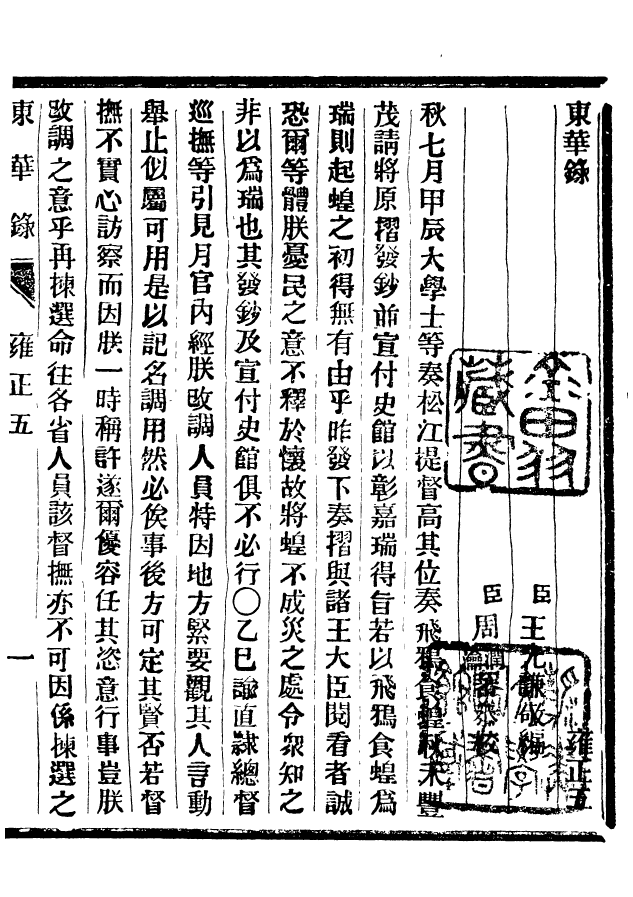 東華錄
雍正五
臣王先謙敬編
臣周潤蕃瀹蕃恭校
秋七月甲辰大學士等奏松江提督高其位奏飛鴉食蝗秋禾豐
茂請將原摺發鈔並宣付史館以彰嘉瑞得旨若以飛鴉食蝗爲
瑞則起蝗之初得無有由乎昨發下奏摺與諸王大臣閱看者誠
恐爾等體朕憂民之意不釋於懷故將蝗不成災之處令眾知之
非以爲瑞也其發鈔及宣付史館俱不必行○乙巳諭直隸總督
巡撫等引見月官內經朕改調人員特因地方緊要觀其人言動
舉止似屬可用是以記名調用然必俟事後方可定其賢否若督
撫不實心訪察而因朕一時稱許遂爾優容任其恣意行事豈朕
改調之意乎再揀選命往各省人員該督撫亦不可因係揀選之
東華錄 雍正五 一